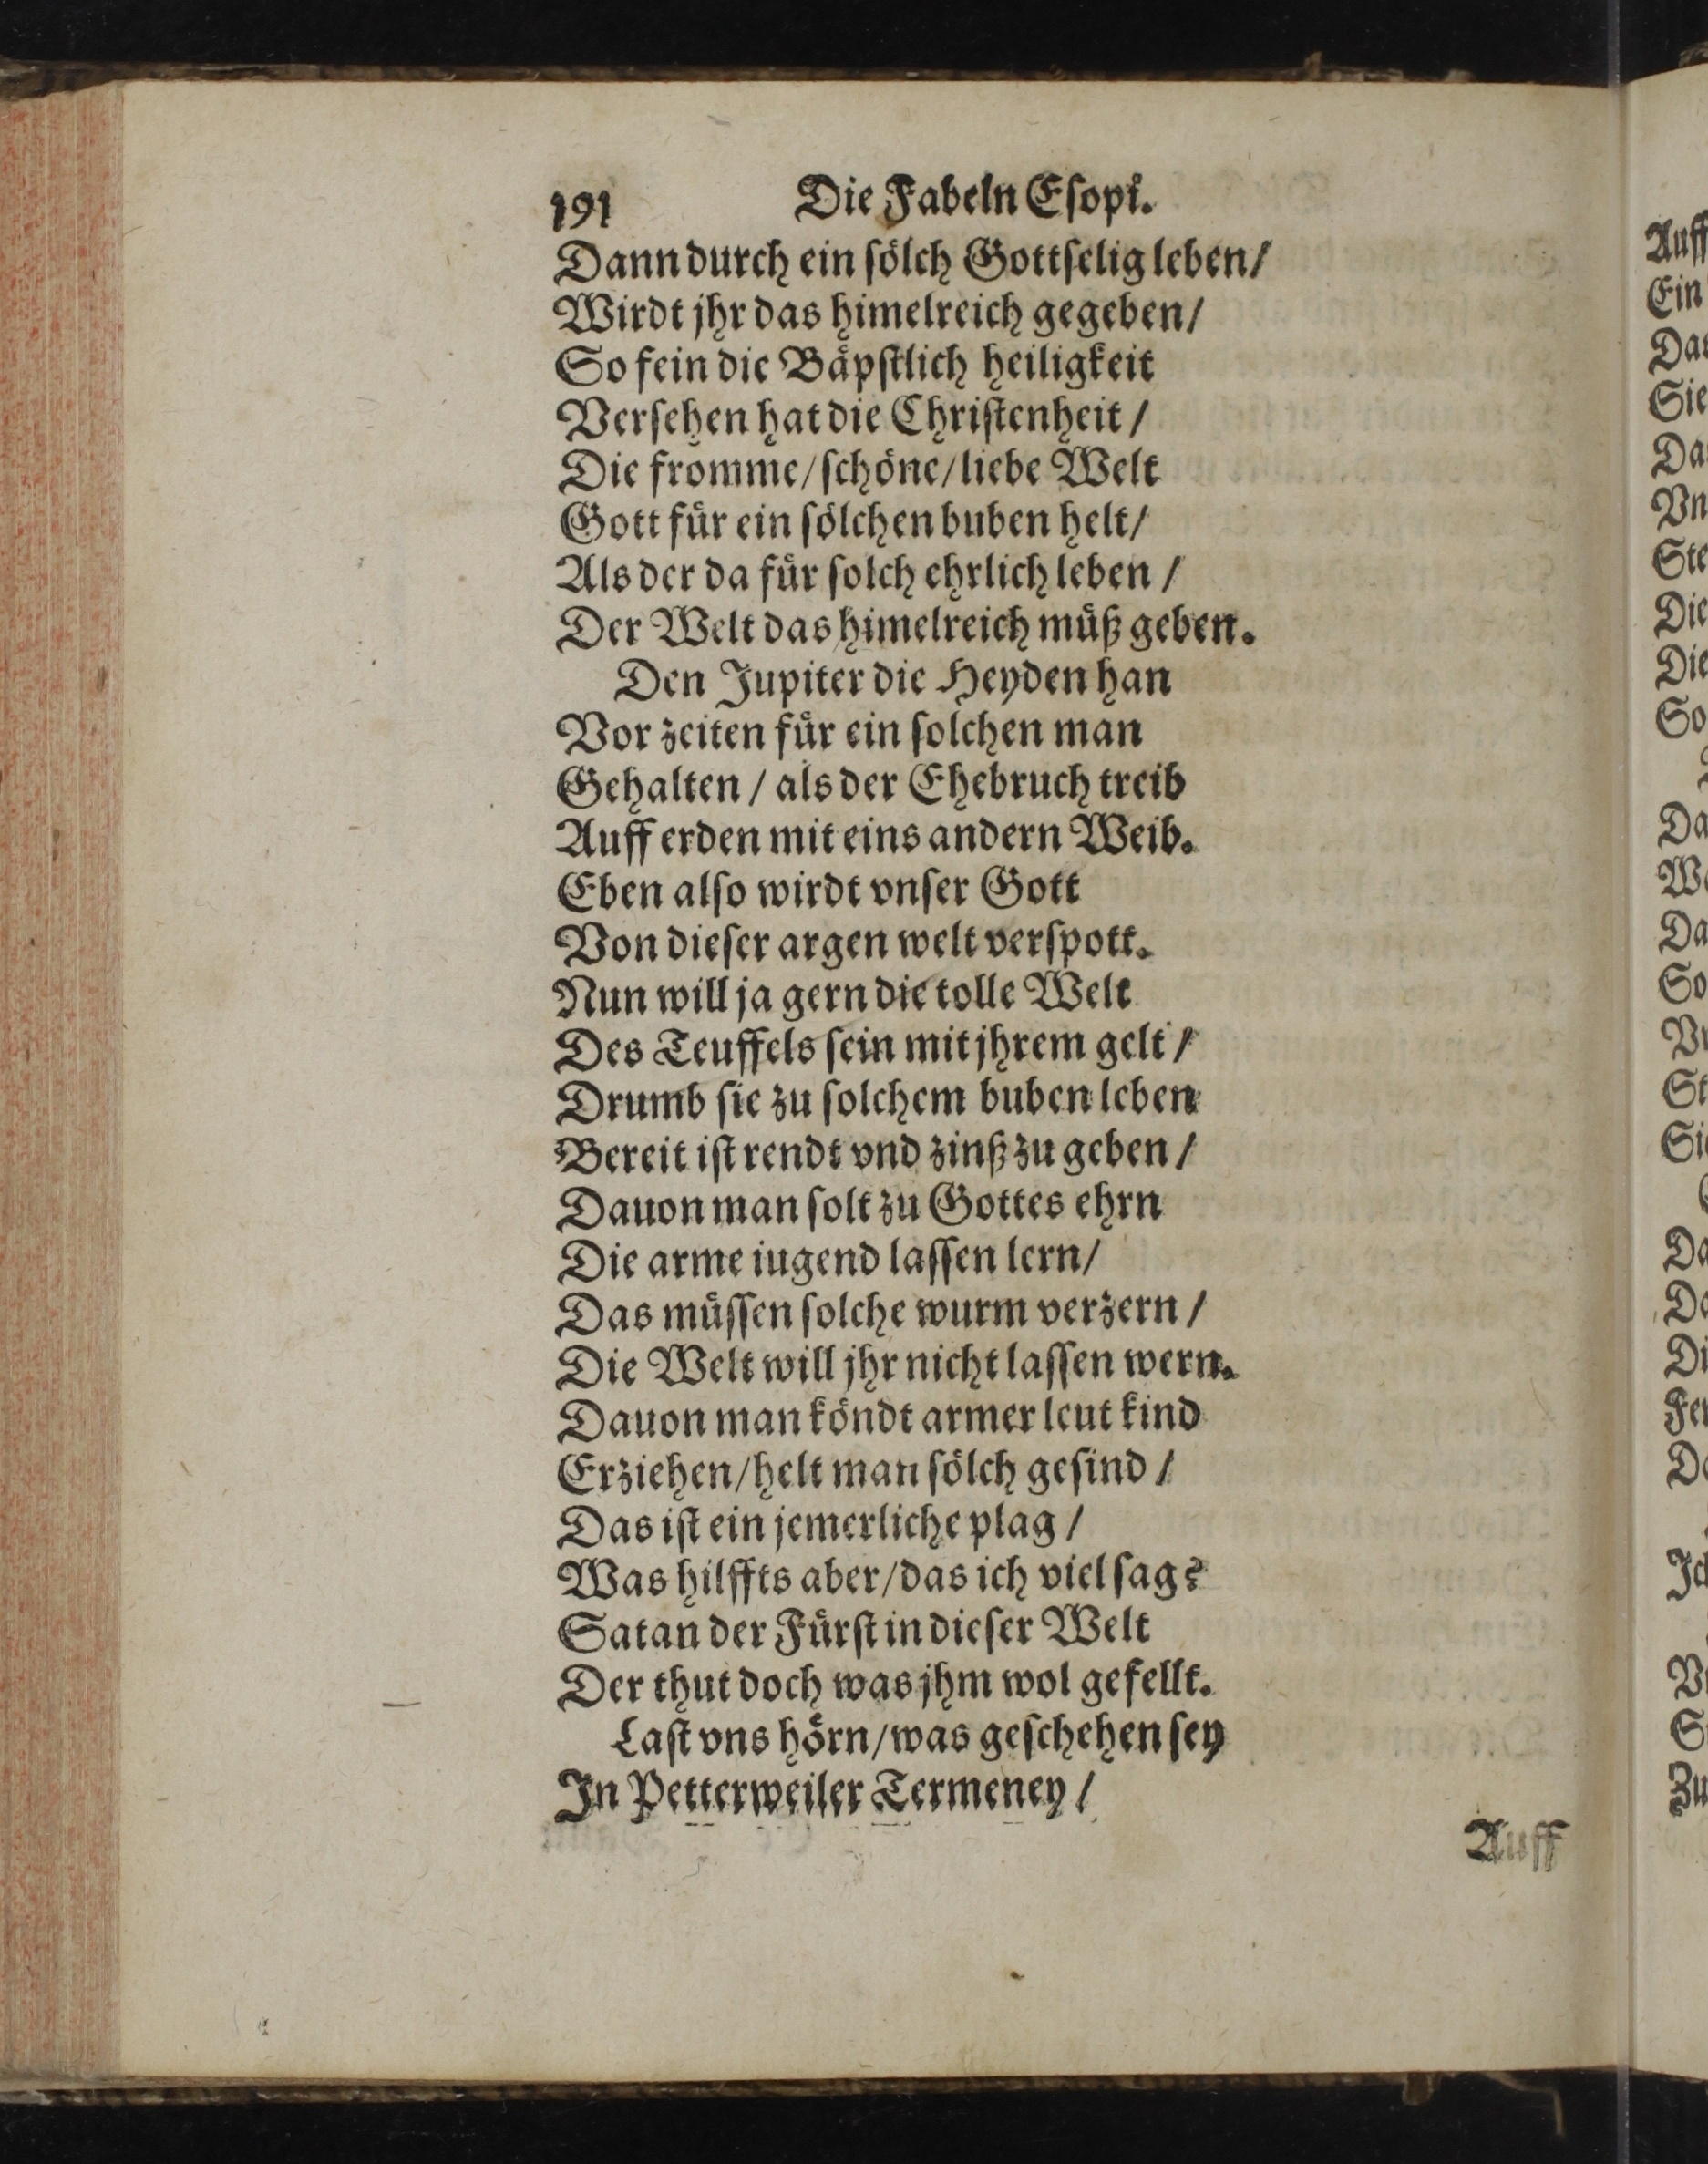 191 Die Fabeln Eſopi.
Dann durch ein ſoͤlch Gottſelig leben/
Wirdt jhr das himelreich gegeben/
So fein die Baͤpſtlich heiligkeit
Verſehen hat die Chriſtenheit /
Die fromme/ſchoͤne/liebe Welt
Gott fuͤr ein ſoͤlchen buben helt/
Als der da fuͤr ſolch ehrlich leben /
Der Welt das himelreich muͤß geben.
Den Jupiter die Heyden han
Vor zeiten fuͤr ein ſolchen man
Gehalten / als der Ehebruch treib
Auff erden mit eins andern Weib.
Eben alſo wirdt vnſer Gott
Von dieſer argen welt verſpott.
Nun will ja gern die tolle Welt
Des Teuffels ſein mit jhrem gelt /
Drumb ſie zu ſolchem buben leben
Bereit iſt rendt vnd zinß zu geben /
Dauon man ſolt zu Gottes ehrn
Die arme iugend laſſen lern/
Das muͤſſen ſolche wurm verzern /
Die Welt will jhr nicht laſſen wern.
Dauon man koͤndt armer leut kind
Erziehen/helt man ſoͤlch geſind /
Das iſt ein jemerliche plag /
Was hilffts aber/das ich viel ſag?
Satan der Fuͤrſt in dieſer Welt
Der thut doch was jhm wol gefellt.
Laſt vns hoͤrn/was geſchehen ſey
In Petterweiler Termeney /
Auff
Auff
Ein
Sie
Die
Die
So
So
Zu